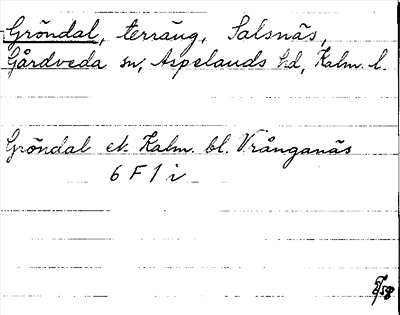 Gröndal, terräng, Salsnäs,
Gårdveda sn, Aspelands hd, Kalm. l.
Gröndal ek. Kalm. bl. Vrånganäs
6 F 1 i